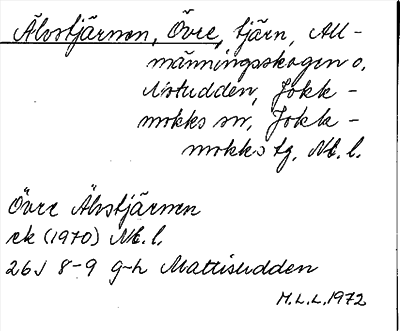 Älvstjärnen, Övre, tjärn, All-
männingsskogen o.
Nstudden, Jokk-
mokks sn, Jokk-
mokks tg, Nb. l.
Övre Älvstjärnen
ek (1970) Nb. l.
26J 8-9 g-h Mattisudden
M.L.L. 1972